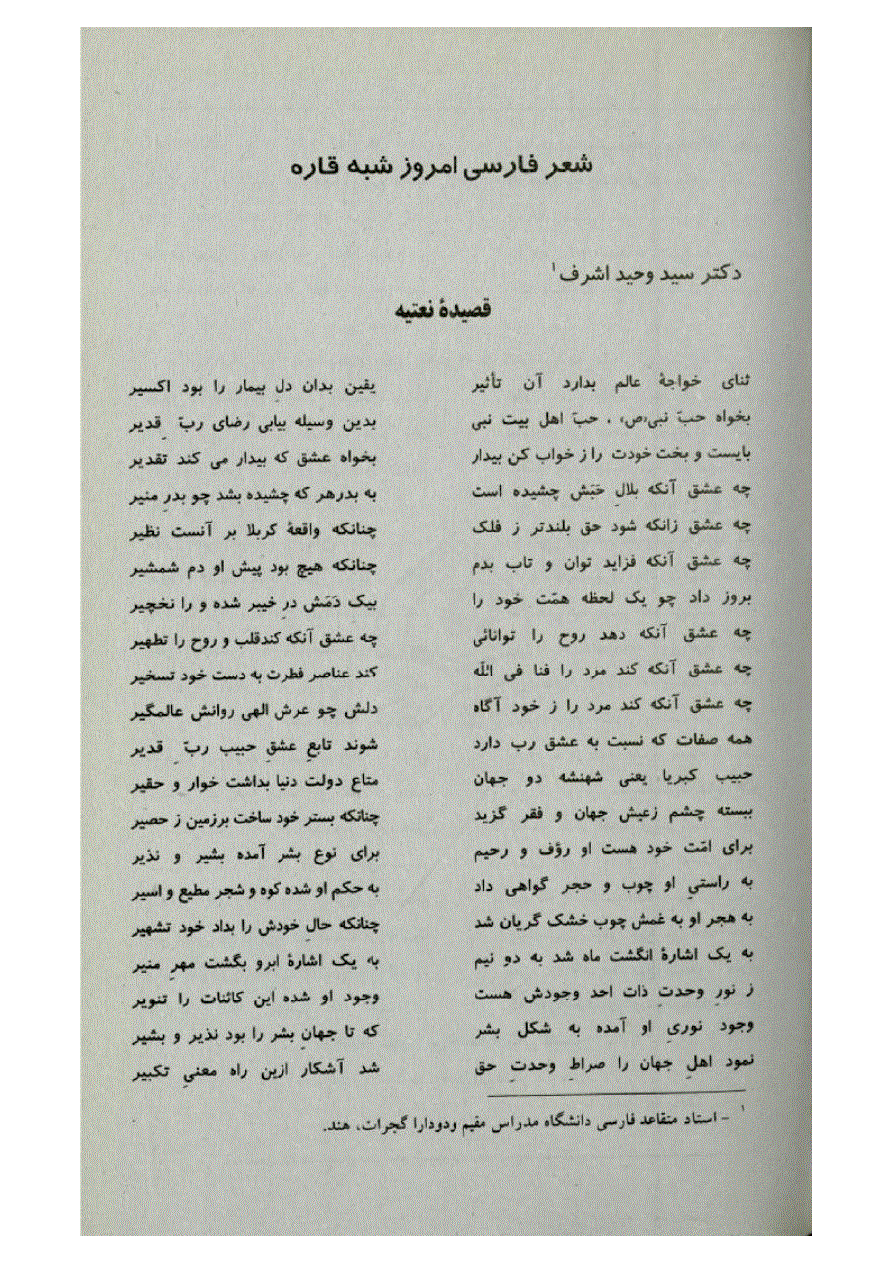 شعر فارسی امروز شبه قاره
دکتر سید وحید اشرف۱
قصیدۀ نعتیه
ثنای خواجۀ عالم بدارد آن تأثیر یقین بدان دلِ بیمار را بود اکسیر
بخواه حبّ نبی(ص)، حبّ اهل بیت نبی بدین وسیله بیابی رضای ربِّ قدیر
بایست و بخت خودت را ز خواب کن بیدار بخواه عشق که بیدار می کند تقدیر
چه عشق آنکه بلالِ حَبَش چشیده است به بدرهر که چشیده بشد چو بدرِ منیر
چه عشق زانکه شود حق بلندتر ز فلک چنانکه واقعۀ کربلا بر آنست نظیر
چه عشق آنکه فزاید توان و تاب بدم چنانکه هیچ بود پیش او دم شمشیر
بروز داد چو یک لحظه همّت خود را بیک دَمَش درِ خیبر شده و را نخچیر
چه عشق آنکه دهد روح را توانائی چه عشق آنکه کندقلب و روح را تطهیر
چه عشق آنکه کند مرد را فنا فی الله کند عناصر فطرت به دست خود تسخیر
چه عشق آنکه کند مرد را ز خود آگاه دلش چو عرش الهی روانش عالمگیر
همه صفات که نسبت به عشق رب دارد شوند تابعِ عشقِ حبیب ربِّ قدیر
حبیب کبریا یعنی شهنشه دو جهان متاع دولت دنیا بداشت خوار و حقیر
ببسته چشم زعیش جهان و فقر گزید چنانکه بستر خود ساخت برزمین ز حصیر
برای امّت خود هست او رؤف و رحیم برای نوع بشر آمده بشیر و نذیر
به راستیِ او چوب و حجر گواهی داد به حکم او شده کوه و شجر مطیع و اسیر
به هجر او به غمش چوب خشک گریان شد چنانکه حالِ خودش را بداد خود تشهیر
به یک اشارۀ انگشت ماه شد به دو نیم به یک اشارۀ ابرو بگشت مهرِ منیر
ز نورِ وحدتِ ذات احد وجودش هست وجود او شده این کائنات را تنویر
وجود نوریِ او آمده به شکل بشر که تا جهانِ بشر را بود نذیر و بشیر
نمود اهلِ جهان را صراطِ وحدتِ حق شد آشکار ازین راه معنیِ تکبیر
۱ - استاد متقاعد فارسی دانشگاه مدراس مقیم ودودارا گجرات، هند.